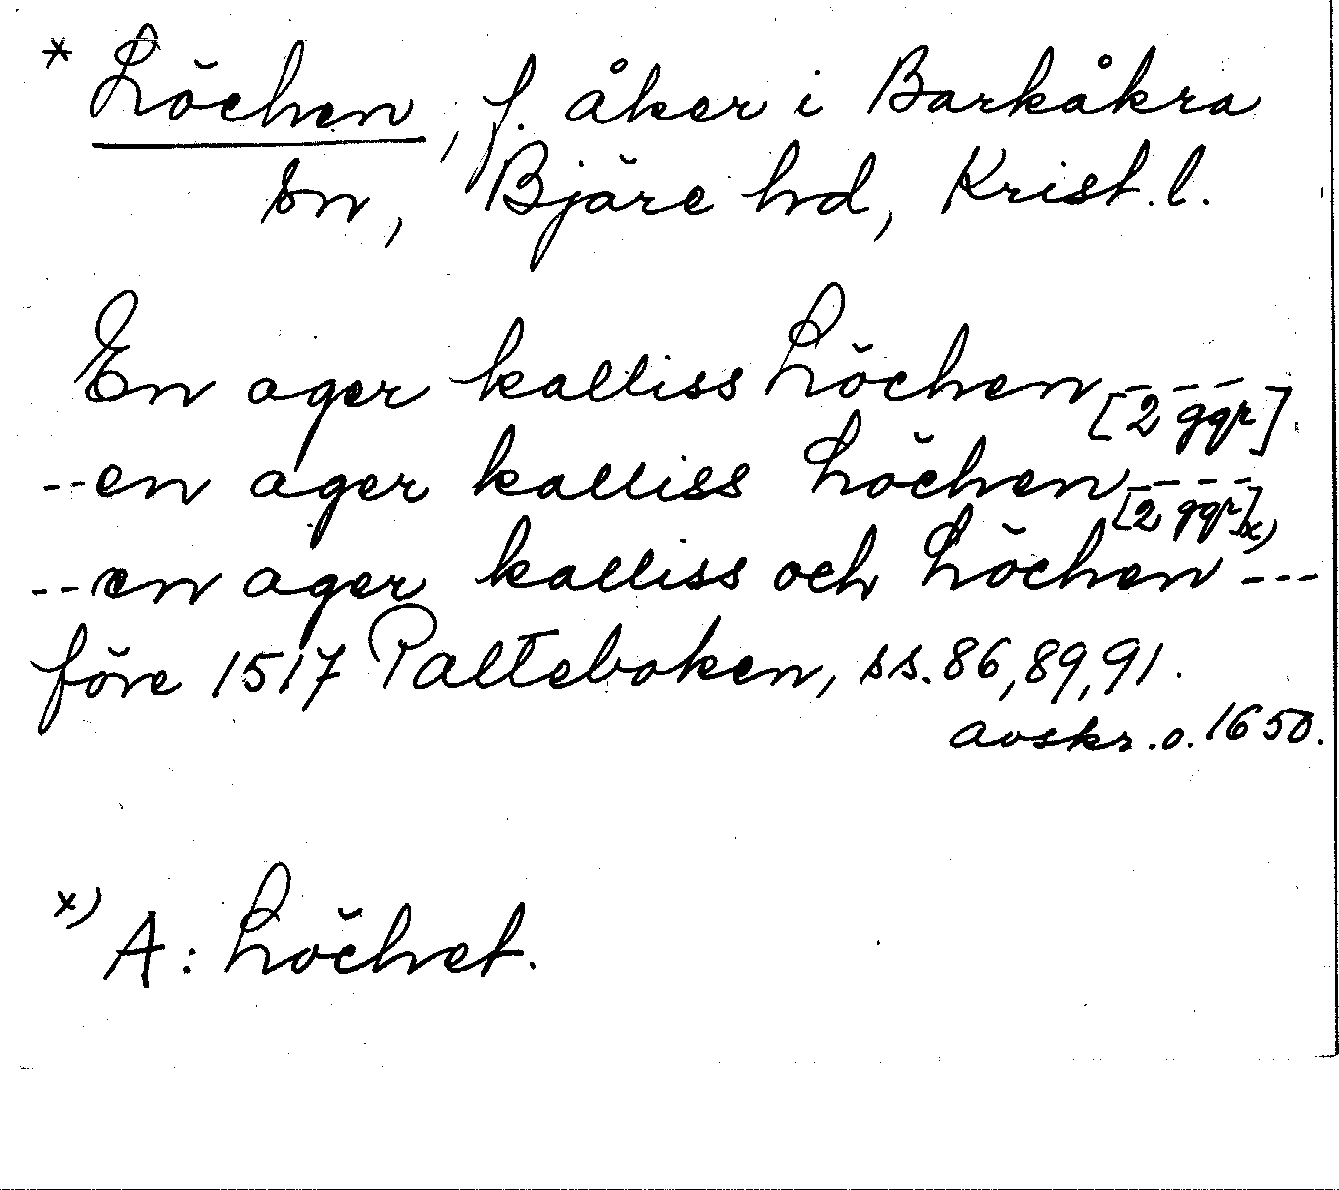 * Löchen, f. åker i Barkåkra
sn, Bjäre hd, Krist.l.
En ager kalliss Löchen --- [2 ggr].
--en ager kalliss Löchen---- [2 ggr] x)
--en ager kalliss och Löchen ---
före 1517 Palteboken, ss. 86, 89, 91.
avskr. o. 1650.
x) A: Löchet.